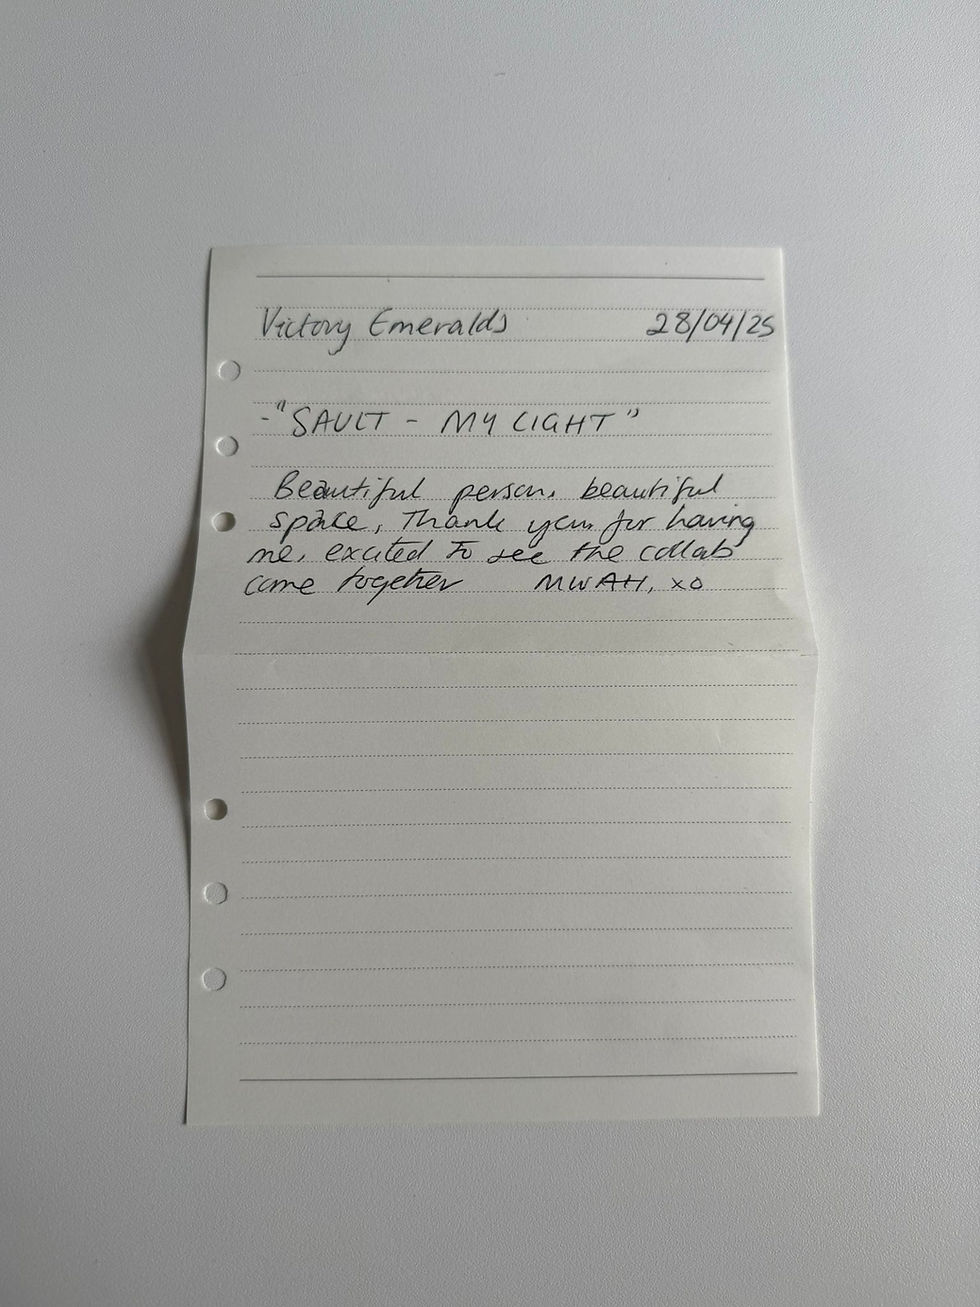 Victory Emeralds 28/04/25
- "SAULT - MY LIGHT"
Beautiful person, beautiful
space, Thank you for having
me, excited to see the collab
come together MWAH, xo